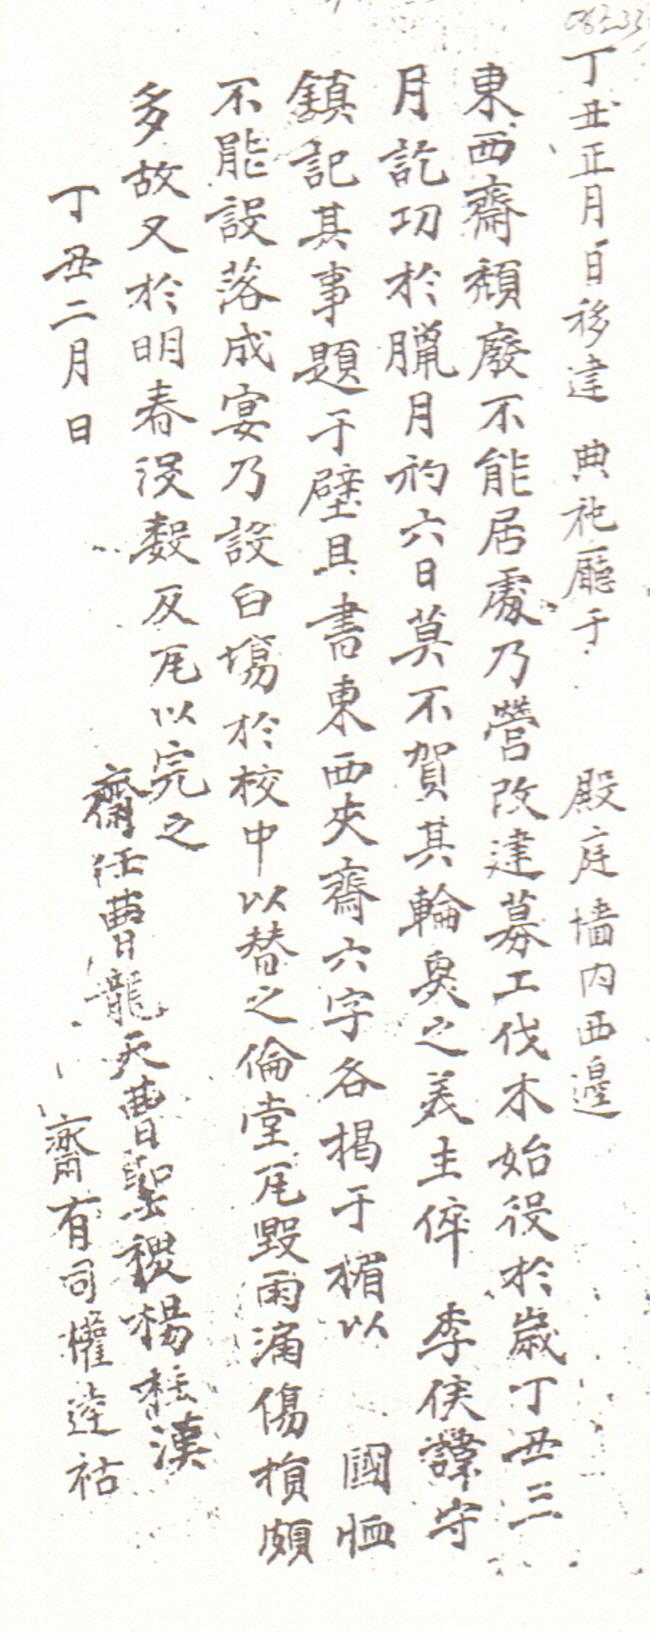 丁丑正月日移建 典祀廳于 殿庭墻內西邊
東西齋頹廢不能居處乃營改建募工伐木始役於歲丁丑三
月訖功於臘月初六日莫不賀其輪奐之美主倅 李侯 守
鎭記其事題于壁且書東西夾齋六字各揭于楣以 國恤
不能設落成宴乃設白場於校中以替之倫堂瓦毀雨漏傷損頗
多故又於明春沒數反瓦以完之
丁丑二月日
齋任曺龍天曺聖稷楊 漢
齋有司權逵祜